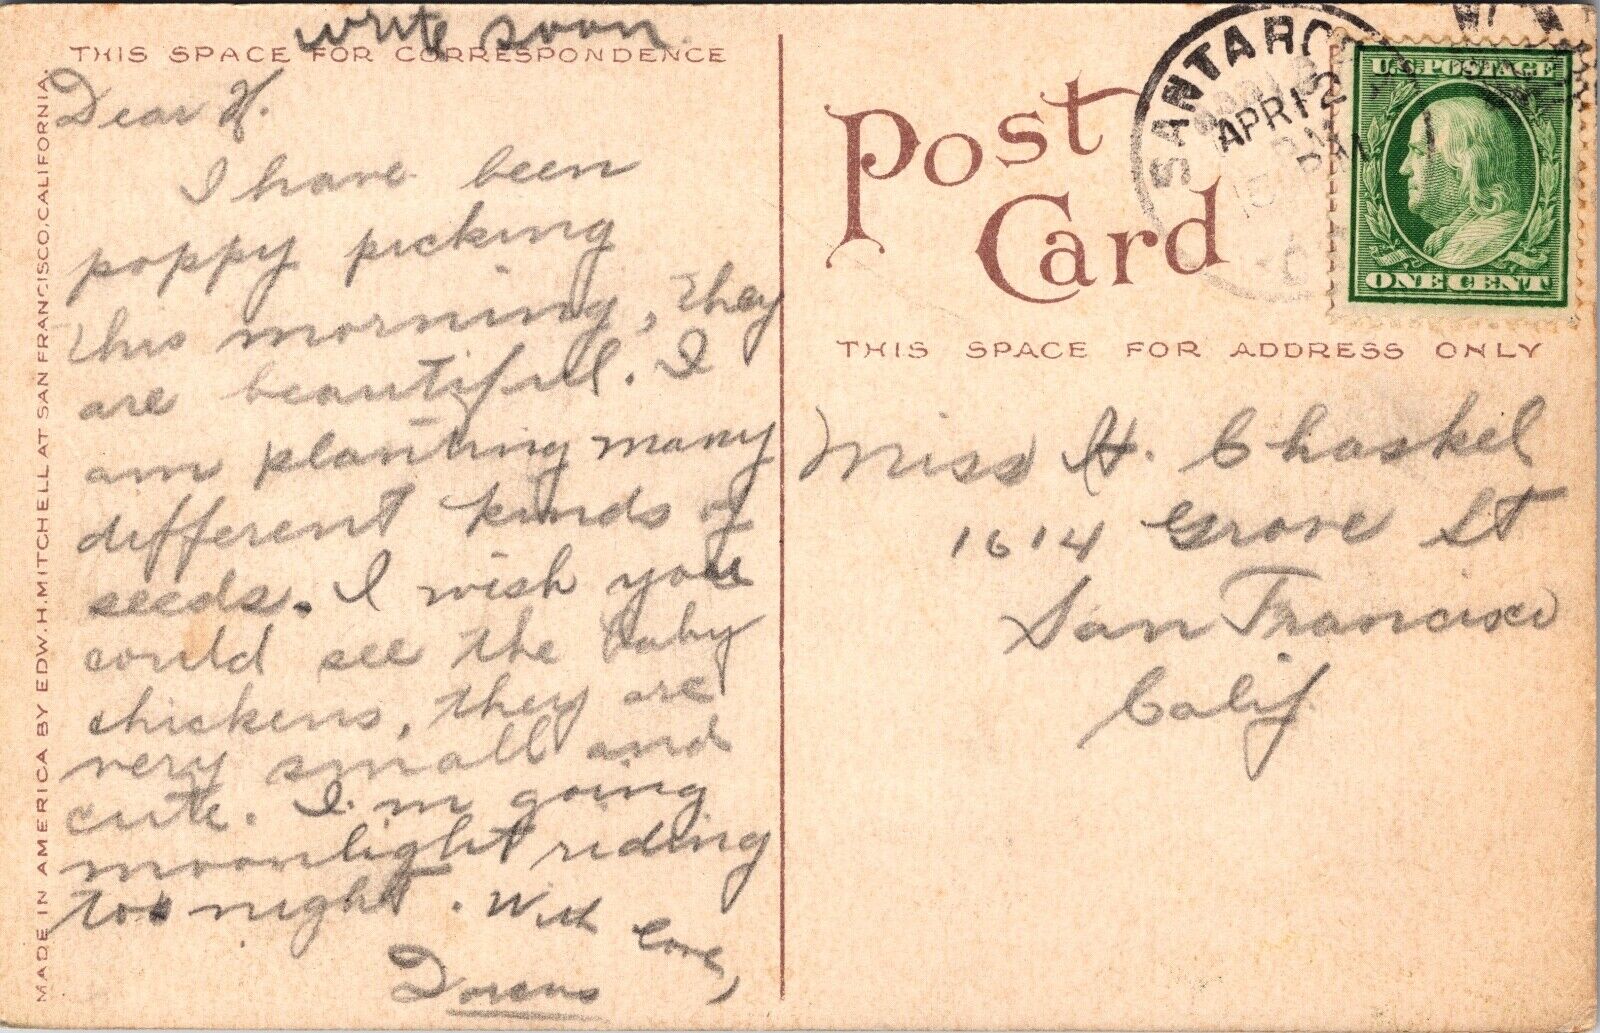 write soon.
THIS SPACE FOR CORRESPONDENCE
Dear H.
I have been
poppy picking
this morning, they
are beautiful. I
am planting many
different kinds of
seeds. I wish you
could see the baby
chickens, they are
very small and
cute. I'm going
moonlight riding
to night. With love,
MADE IN AMERICA BY EDW. H. MITCHELL AT SAN FRANCISCO, CALIFORNIA.
Post
Card
SANTA ROSA
APR 12
U.S. POSTAGE
ONE CENT
THIS SPACE FOR ADDRESS ONLY
Miss H. Chaskel
1614 Grove St
San Francisco
Calif.